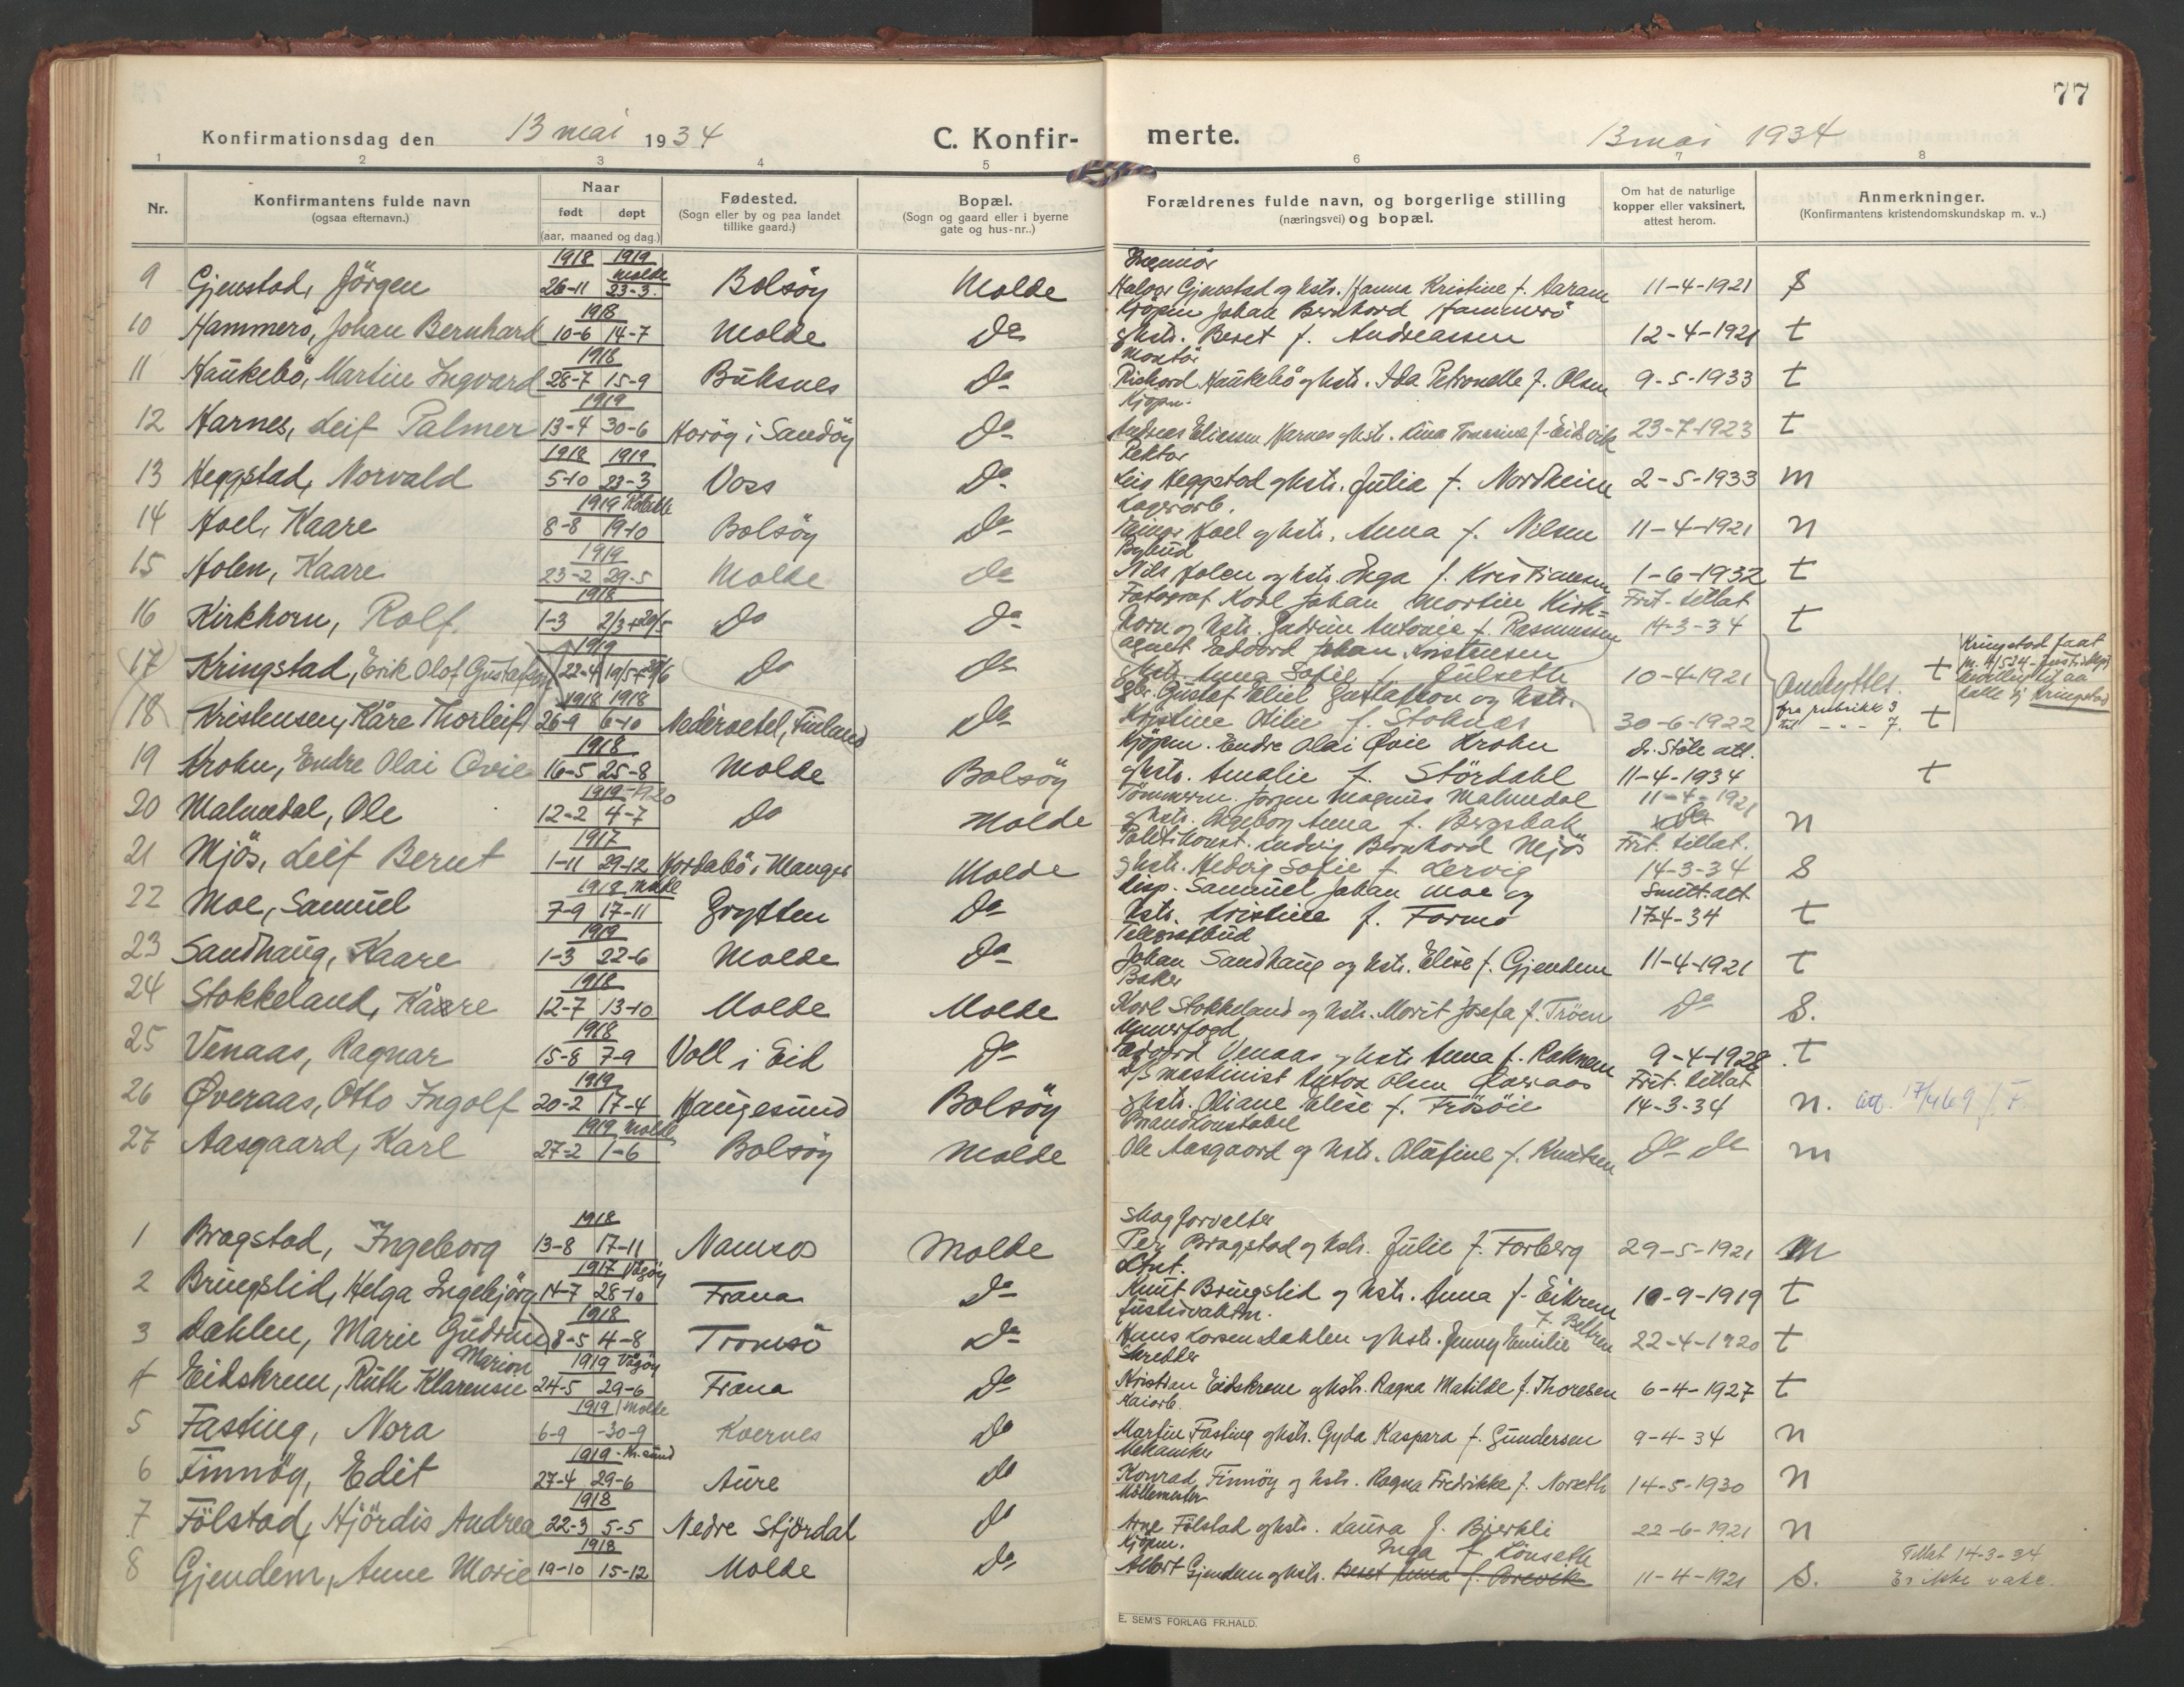 77
Konfirmationsdag den 13 mai 1934 C. Konfir- merte. 13 mai 1934
1 2 3 4 5 6 7 8
Nr. Konfirmantens fulde navn (ogsaa efternavn.) Naar født døpt (aar, maaned og dag.) Fødested. (Sogn eller by og paa landet tillike gaard.) Bopæl. (Sogn og gaard eller i byerne gate og hus-nr..) Forældrenes fulde navn, og borgerlige stilling (næringsvei) og bopæl. Om hat de naturlige kopper eller vaksinert, attest herom. Anmerkninger. (Konfirmantens kristendomskundskap m. v..)
1918 1919 Molde Ingeniör
9 Gjenstad, Jörgen 26-11 23-3. Bolsöy Molde Halvor Gjenstad og hstr. Hanna Kristine f. Aaram 11-4-1921 S
1918 Kjöpm. Johan Bernhard Hammerö
10 Hammerö, Johan Bernhard 10-6 14-7 Molde Do ghstr. Beret f. Andreassen 12-4-1921 t
1918 Montör
11 Haukebö, Martin Ingvard 28-7 15-9 Buksnes Do Rickard Haukebö ghstr. Ida Petronelle f. Olsen 9-5-1933 t
1919 Kjöpm.
12 Harnes, Leif Palmer 13-4 30-6 Haröy i Sandöy Do Andreas Eliassen Harnes ghstr. Lina Tomasine f. Eidsvik 23-7-1923 t
1918 1919 Rektor
13 Heggstad, Norvald 5-10 23-3 Voss Do Leiv Heggstad ghstr. Julia f. Nordheim 2-5-1933 m
1919 Lagerarb.
14 Hoel, Kaare 8-8 19-10 Bolsöy Do Hoel ghstr. Anna f. Nilsen 11-4-1921 n
1919 Bybud
15 Holen, Kaare 23-2 29-5 Molde Do Nils Holen og hstr. Inga f. Kristiansen 1-6-1932 t
1918 Fotograf Karl Johan Martin Kirk= Frit. tillat
16 Kirkhorn, Rolf. 1-3 2/3+20/5 Do Do horn og hstr. Antonie f. Rasmussen 14-3-34 t
1919 agent Edvard Johan Kristensen
17 Kringstad, Erik Olof Gustafson 22-4 Do Do ghstr. Anna Sofie f. Julseth 10-4-1921 Ombyttes. t
1918 1918 Gustaf Eliel Gustafson og hstr.
18 Kristensen, Kåre Thorleif 26-9 6-10 Nedervetel, Finland Do Kristine Otilie f. Stoknes 30-6-1922 fra rubrikk 3 til - - 7. t
Kringstad
1918 Kjöpm. Endre Olai Övie Krohn dr. Stöle att.
19 Krohn, Endre Olai Övie 16-5 25-8 Molde Bolsöy ghstr. Amalie f. Stördahl 11-4-1934 t
1919-1920 Tömmerm. Jörgen Magnus Malmedal 11-4-1921
20 Malmedal, Ole 12-2 4-7 Do Molde ghstr. Ingeborg Anna f. Bergsbak n
1917 Politikonst. Ludvig Bernhard Mjös Frit. tillat.
21 Mjös, Leif Bernt 1-11 29-12 Hordabö i Manger Molde ghstr. Hedvig Sofie f. Lervig 14-3-34 S
1918 Molde disp. Samuel Johan Moe og Smitt: att
22 Moe, Samuel 7-9 17-11 Grytten Do hstr. Kristine f. Formo 17-4-34 t
1919 Telegrafbud
23 Sandhaug, Kaare 1-3 22-6 Molde Do Johan Sandhaug og hstr. Elise f. Gjendem 11-4-1921 t
1918 Baker
24 Stokkeland, Kåre 12-7 13-10 Molde Molde Karl Stokkeland og hstr. Marit Josefa f. Tröen Do S.
1918
25 Venaas, Ragnar 15-8 7-9 Voll i Eid Do Edvard Venaas ghstr Anna f. Raknem 9-4-1928 t
1919 D/S maskinist Anton Olsen Överaas Frit. tillat
26 Øveraas, Otto Ingolf 20-2 17-4 Haugesund Bolsöy ghstr. Oliane Elise f. Frösöie 14-3-34 n.
1919 Molde Brandkonstabel
27 Aasgaard, Karl 27-2 1-6 Bolsöy Molde Ole Aasgaard og hstr. Olufine f. Knutsen Do Do m
1918 Skogforvalter
1 Bragstad, Ingeborg 13-8 17-11 Namsos Molde Per Bragstad og hstr. Julie f. Forberg 29-5-1921 M
1917 Vågöy
2 Bringslid, Helga Ingebjörg 14-7 28-10 Fræna Do Knut Bringslid og hstr. Anna f. Eikrem 10-9-1919 t
1918 f. Beltren
3 Dahlen, Marie Gudrun 8-5 4-8 Tromsö Do Hans Larsen Dahlen ghstr. Jenny Emilie 22-4-1920 t
Marion 1919 Vågöy Skredder
4 Eidskrem, Ruth Klarensie 24-5 29-6 Fræna Do Kristian Eidskrem ghstr. Ragna Matilde f. Thoresen 6-4-1927 t
1919 Molde Kaiarb.
5 Fasting, Nora 6-9 -30-9 Kvernes Do Martin Fasting ghstr. Gyda Kaspara f. Gundersen 9-4-34 n
1919-Kr.sund Mekaniker
6 Finnöy, Edit 27-4 29-6 Aure Do Konrad Finnöy og hstr. Ragna Fredrikke f. Norseth 14-5-1930 n
1918 Möllemester
7 Fölstad, Hjördis Andrea 22-3 5-5 Nedre Stjördal Do Arne Fölstad ghstr. Laura f. Bjerkli 22-6-1921 n
1918 Kjöpm. Inga f. Lönseth Tillat 14-3-34
8 Gjendem, Anne Marie 19-10 15-12 Molde Do Albert Gjendem ghstr. 11-4-1921 S. Er ikke vaks.
E. SEM'S FORLAG FR.HALD.